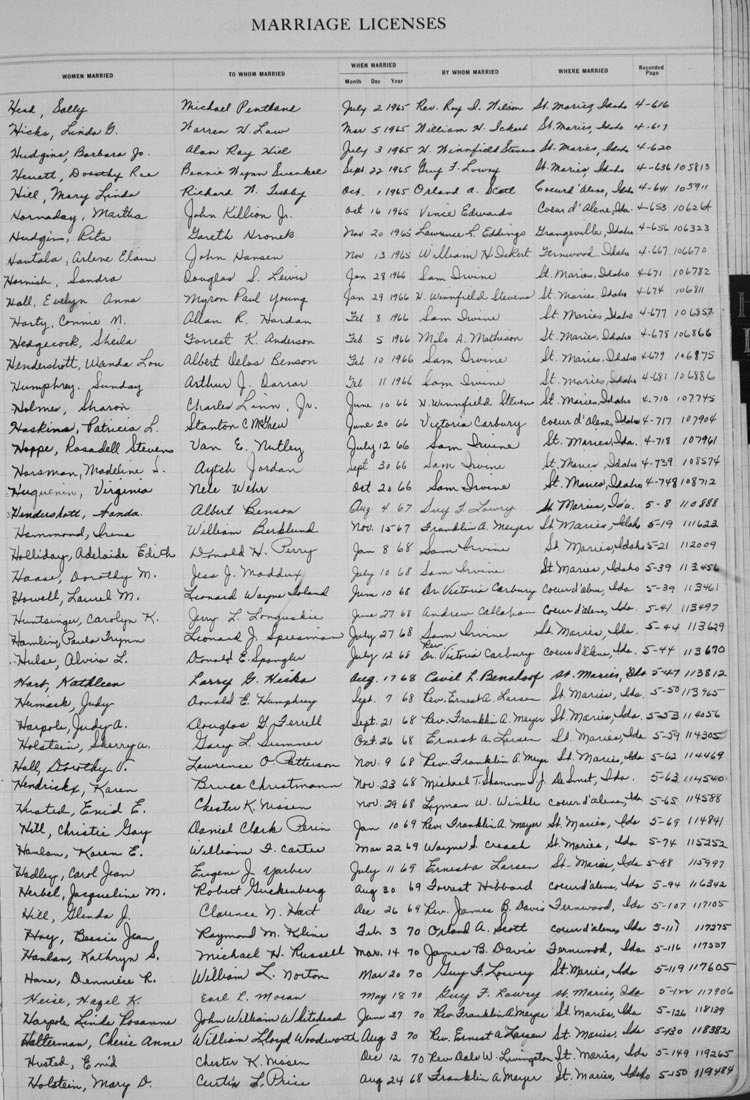 MARRIAGE LICENSES
WOMEN MARRIED TO WHOM MARRIED WHEN MARRIED Month Day Year BY WHOM MARRIED WHERE MARRIED Recorded Page
Head, Sally Michael Pentland July 2 1965 Rev. Roy D. Wilson St. Maries, Idaho 4-616
Hicks, Linda G. Warren H. Law Mar 5 1965 William H. Ickert St. Maries, Idaho 4-617
Hudgins, Barbara Jo. Alan Ray Hill July 3 1965 H. Winnfield Stevens St. Maries, Idaho 4-620
Hewett, Dorothy Rae Bennie Wynn Swenkel Sept. 22 1965 Guy F. Lowry St. Maries, Idaho 4-636 105813
Hill, Mary Linda Richard N. Tubby Oct. 1 1965 Orland A. Scott Coeur d'Alene, Ida 4-641 105911
Hornaday, Martha John Killion Jr. Oct 16 1965 Vince Edwards Coeur d'Alene, Ida. 4-653 106264
Hudgins, Rita Gareth Hronek Nov 20 1965 Lawrence P. Eddings Grangeville, Idaho 4-656 106323
Hautala, Arlene Elain John Hansen Nov 13 1965 William H. Ickert Fernwood, Idaho 4-667 106670
Hornish, Sandra Douglas S. Lewis Jan 28 1966 Sam Irvine St. Maries, Idaho 4-671 106782
Hall, Evelyn Anna Myron Paul Young Jan 29 1966 H. Winnfield Stevens St. Maries, Idaho 4-674 106811
Harty, Connie M. Allan R. Hardan Feb 8 1966 Sam Irvine St. Maries, Idaho 4-677 106857
Hedgecock, Sheila Forrest K. Anderson Feb 5 1966 Milo A. Matheson St. Maries, Idaho 4-678 106866
Hendershott, Wanda Lou Albert Delos Benson Feb 10 1966 Sam Irvine St. Maries, Idaho 4-679 106875
Humphrey, Sunday Arthur J. Darrar Feb 11 1966 Sam Irvine St. Maries, Idaho 4-681 106886
Holmes, Sharon Charles Linn, Jr. June 10 66 H. Winnfield Stevens St. Maries, Idaho 4-710 107745
Haskins, Patricia L. Stanton C McGhew June 20 66 Victoria Carbury Coeur d'Alene, Idaho 4-717 107904
Hoppe, Rosadell Stevens Van E. Nutley July 12 66 Sam Irvine St. Maries, Ida. 4-718 107961
Horsman, Madeline S. Aytch Jordan Sept 30 66 Sam Irvine St. Maries, Idaho 4-739 108574
Huguenin, Virginia Nele Wehr Oct 20 66 Sam Irvine St. Maries, Idaho 4-748 108712
Hendershott, Wanda. Albert Benson Aug 4 67 Guy F. Lowry St. Maries, Ida. 5-8 110888
Hammond, Irene William Berglund Nov. 15 67 Franklin A. Meyer St. Maries, Idaho 5-19 111623
Holliday, Adelaide Edith Donald H. Perry Jan 8 68 Sam Irvine St. Maries, Idaho 5-21 112009
Haase, Dorothy M. Jess J. Maddux July 10 68 Sam Irvine St. Maries, Idaho 5-39 113456
Howell, Laurel M. Leonard Wayne Toland June 10 68 Dr. Victoria Carbury Coeur d'alene, Ida 5-39 113461
Huntsinger, Carolyn K. Jerry L. Longuskie June 27 68 Andrew Callahan Coeur d'alene, Ida. 5-41 113497
Hamling, Paula Lynn Leonard J. Spresman July 27 68 Sam Irvine St. Maries, Ida. 5-44 113629
Hulse, Alvis L. Donald E. Spangler July 12 68 Rev. Dr. Victoria Carbury Coeur d'Alene, Ida. 5-44 113670
Hart, Kathleen Larry G. Hicks Aug. 17 68 Cavid L. Benshoof St. Maries, Ida 5-47 113812
Humark, Judy Donald E. Humphrey Sept. 7 68 Rev. Ernest A. Larsen St. Maries, Ida. 5-50 113965
Harpole, Judy A. Douglas G. Ferrell Sept. 21 68 Rev. Franklin A. Meyer St. Maries, Ida. 5-53 114056
Holstein, Sherry A. Gary L. Summer Oct. 26 68 Ernest A. Larsen St. Maries, Ida. 5-59 114305
Hall, Dorothy V. Lawrence O. Patterson Nov. 9 68 Rev. Franklin A. Meyer St. Maries, Ida 5-62 114469
Hendrickx, Karen Bruce Christmann Nov. 23 68 Michael T. Shannon S.J. De Smet, Ida. 5-63 114540
Husted, Enid E. Chester K. Nissen Nov. 29 68 Lyman W. Winkle Coeur d'alene, Ida. 5-65 114588
Hill, Christie Gay Daniel Clark Perin Jan 10 69 Rev. Franklin A. Meyer St. Maries, Ida 5-69 114841
Hanlon, Karen E. William F. Carter Mar 22 69 Wayne S. Crook St. Maries, Ida 5-74 115252
Hadley, Carol Jean Eugene J. Yarber July 11 69 Ernest A Larsen St. Maries, Ida 5-88 115997
Herbel, Jacqueline M. Robert Guckenberg Aug 30 69 Forrest Hibbard Coeur d'alene, Ida 5-94 116342
Hill, Glenda J. Clarence N. Hart Dec 26 69 Rev. James B. Davis Fernwood, Ida 5-107 117105
Hoy, Bessie Jean Raymond M. Kline Feb 3 70 Orland A. Scott Coeur d'alene, Ida 5-111 117275
Hanlan, Kathryn S. Michael H. Russell Mar. 14 70 James B. Davis Fernwood, Ida. 5-116 117507
Hane, Danniece R. William L. Norton Mar 20 70 Guy F. Lowry St. Maries, Ida 5-119 117605
Heise, Hazel K. Earl P. Moran May 18 70 Guy F. Lowry St. Maries, Ida 5-122 117906
Harpole, Linda Rosanne John William Whitehead June 27 70 Rev Franklin A Meyer St. Maries, Ida. 5-126 118139
Halterman, Cherie Anne William Lloyd Woodworth Aug 3 70 Rev. Ernest A. Larsen St. Maries, Ida. 5-130 118382
Husted, Enid Chester K. Nissen Dec 12 70 Rev. Dale W. Livingston St. Maries, Ida. 5-149 119265
Holstein, Mary D. Curtis L. Price Aug 24 68 Franklin A Meyer St. Maries, Idaho 5-150 119484